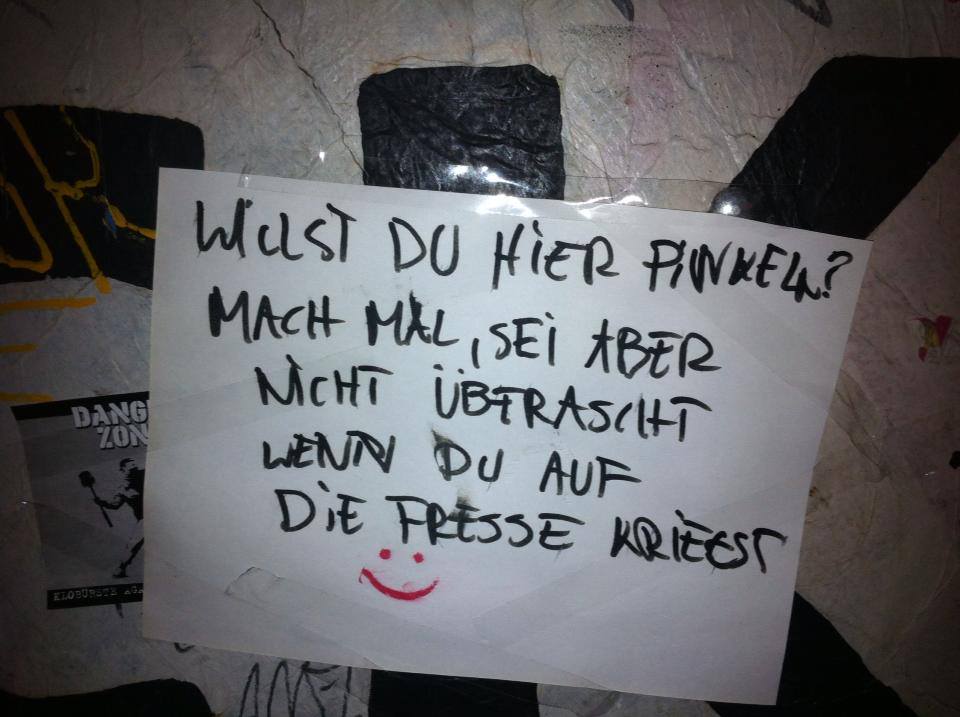 WILLST DU HIER PINKELN?
MACH MAL, SEI ABER
NICHT ÜBERASCHT
WENN DU AUF
DIE FRESSE KRIEGST
DANG
ZON
KLOBÜRSTE AGA